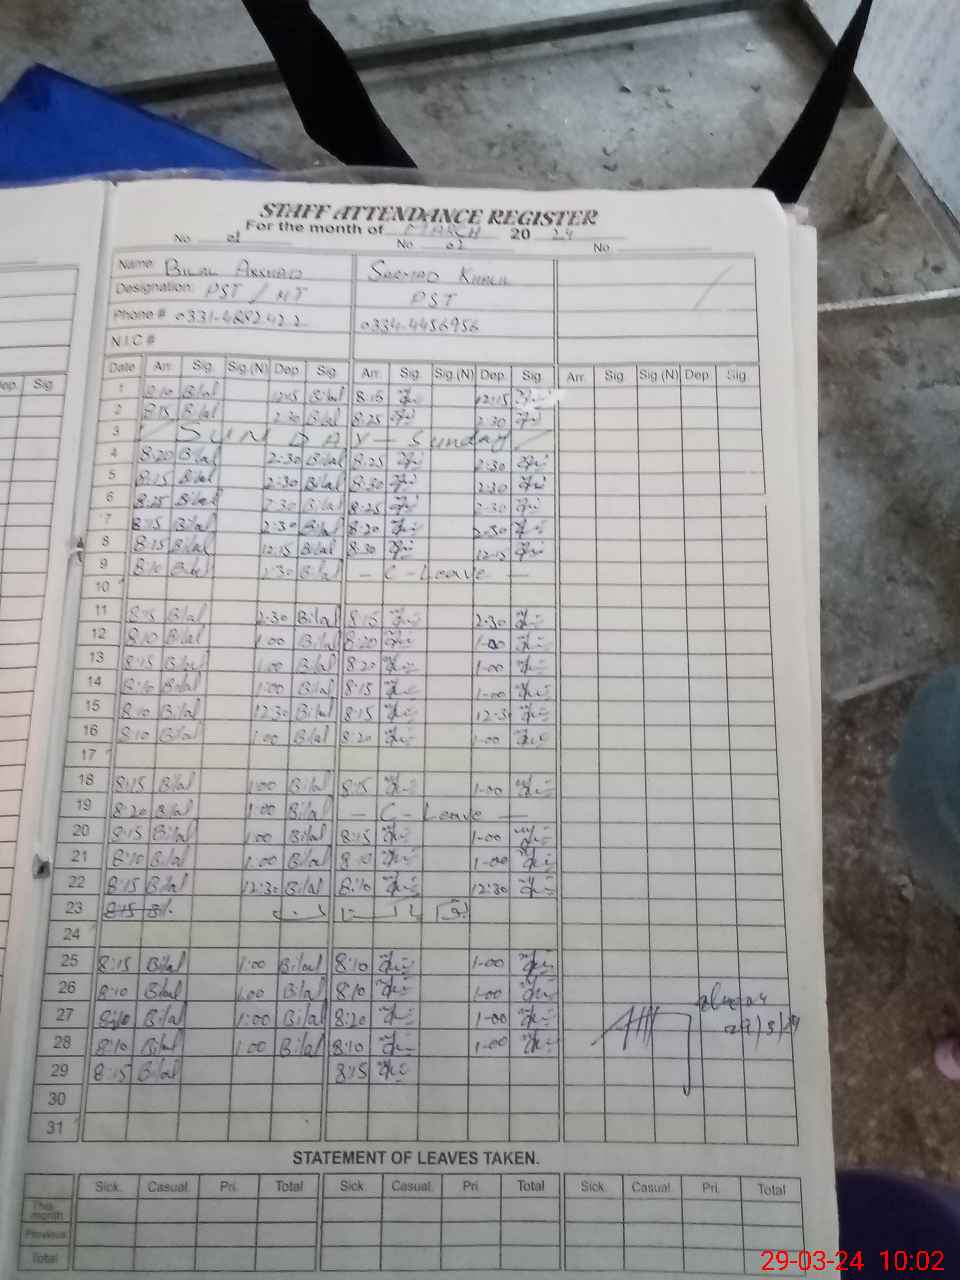 STAFF ATTENDANCE REGISTER
For the month of MARCH 20 24
No. 01 No. 02 No.
Name: BILAL SARMAD
Designation: PST / HT PST
Phone # 0331-4882422 0334-4456956
N.I.C #
Date Arr. Sig. Sig.(N) Dep. Sig. Arr. Sig. Sig.(N) Dep. Sig. Arr. Sig. Sig.(N) Dep. Sig.
1 8:10 Bilal 12:15 Bilal 8:15 12:15
2 8:15 Bilal 2:30 Bilal 8:25 2:30
3 SUNDAY - Sunday
4 8:20 Bilal 2:30 Bilal 8:25 2:30
5 8:15 Bilal 2:30 Bilal 8:30 2:30
6 8:25 Bilal 2:30 Bilal 8:25 2:30
7 8:15 Bilal 2:30 Bilal 8:20 2:30
8 8:15 Bilal 12:15 Bilal 8:30 12:15
9 8:10 Bilal 2:30 Bilal - C - Leave -
10
11 8:15 Bilal 2:30 Bilal 8:15 2:30
12 8:10 Bilal 1:00 Bilal 8:20 1-00
13 8:15 Bilal 1:00 Bilal 8:20 1-00
14 8:10 Bilal 1:00 Bilal 8:15 1-00
15 8:10 Bilal 12:30 Bilal 8:15 12-30
16 8:10 Bilal 1:00 Bilal 8:20 1-00
17
18 8:15 Bilal 1:00 Bilal 8:15 1-00
19 8:20 Bilal 1:00 Bilal - C - Leave -
20 8:15 Bilal 1:00 Bilal 8:15 1-00
21 8:10 Bilal 1:00 Bilal 8:10 1-00
22 8:15 Bilal 12:30 Bilal 8:10 12:30
23 8:15 Bi.
24
25 8:15 Bilal 1:00 Bilal 8:10 1-00
26 8:10 Bilal 1:00 Bilal 8:10 1-00
27 8:10 Bilal 1:00 Bilal 8:20 1-00
29/3/24
28 8:10 Bilal 1:00 Bilal 8:10 1-00
29 8:15 Bilal 8:15
30
31
STATEMENT OF LEAVES TAKEN.
Sick. Casual. Pri. Total Sick. Casual. Pri. Total Sick. Casual. Pri. Total
This month
Previous
Total
29-03-24 10:02